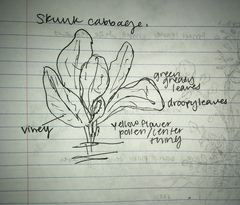 Skunk cabbage.
green
greasy
leaves
droopy leaves
viney
yellow flower
pollen/center
thing